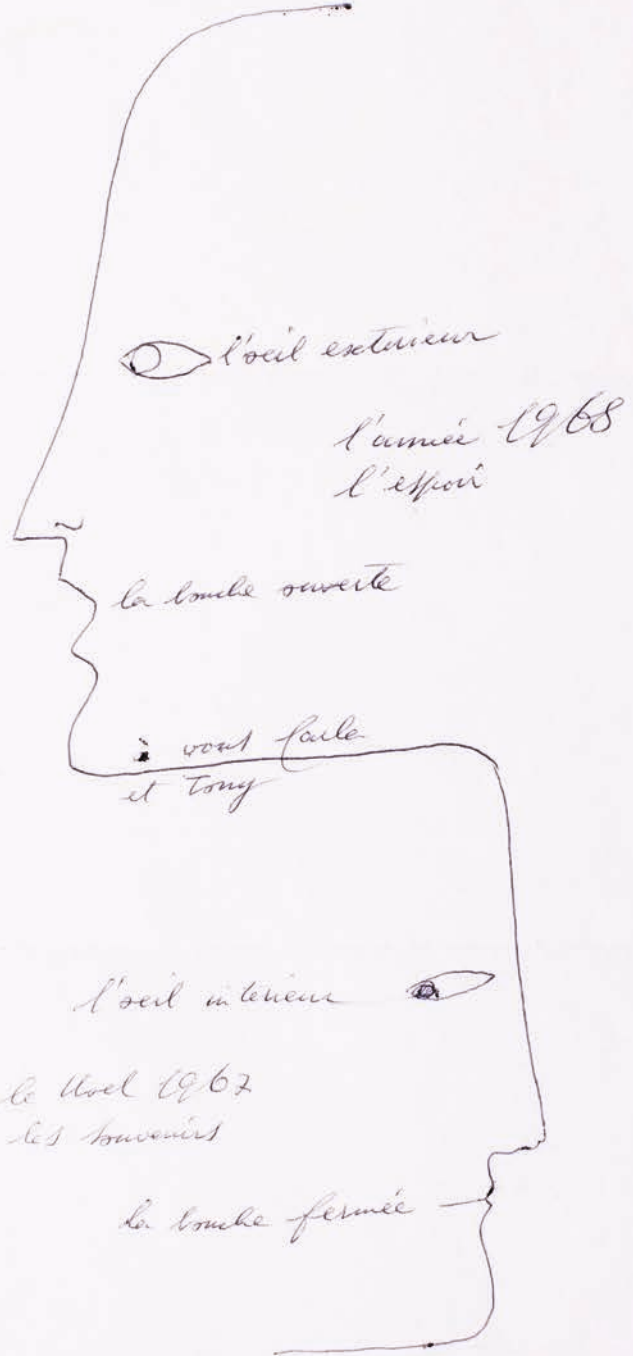 l'oeil exterieur
l'année 1968
l'espoir
la bouche ouverte
à vous
et Tony
l'oeil interieur
le Noel 1967
les souvenirs
la bouche fermée